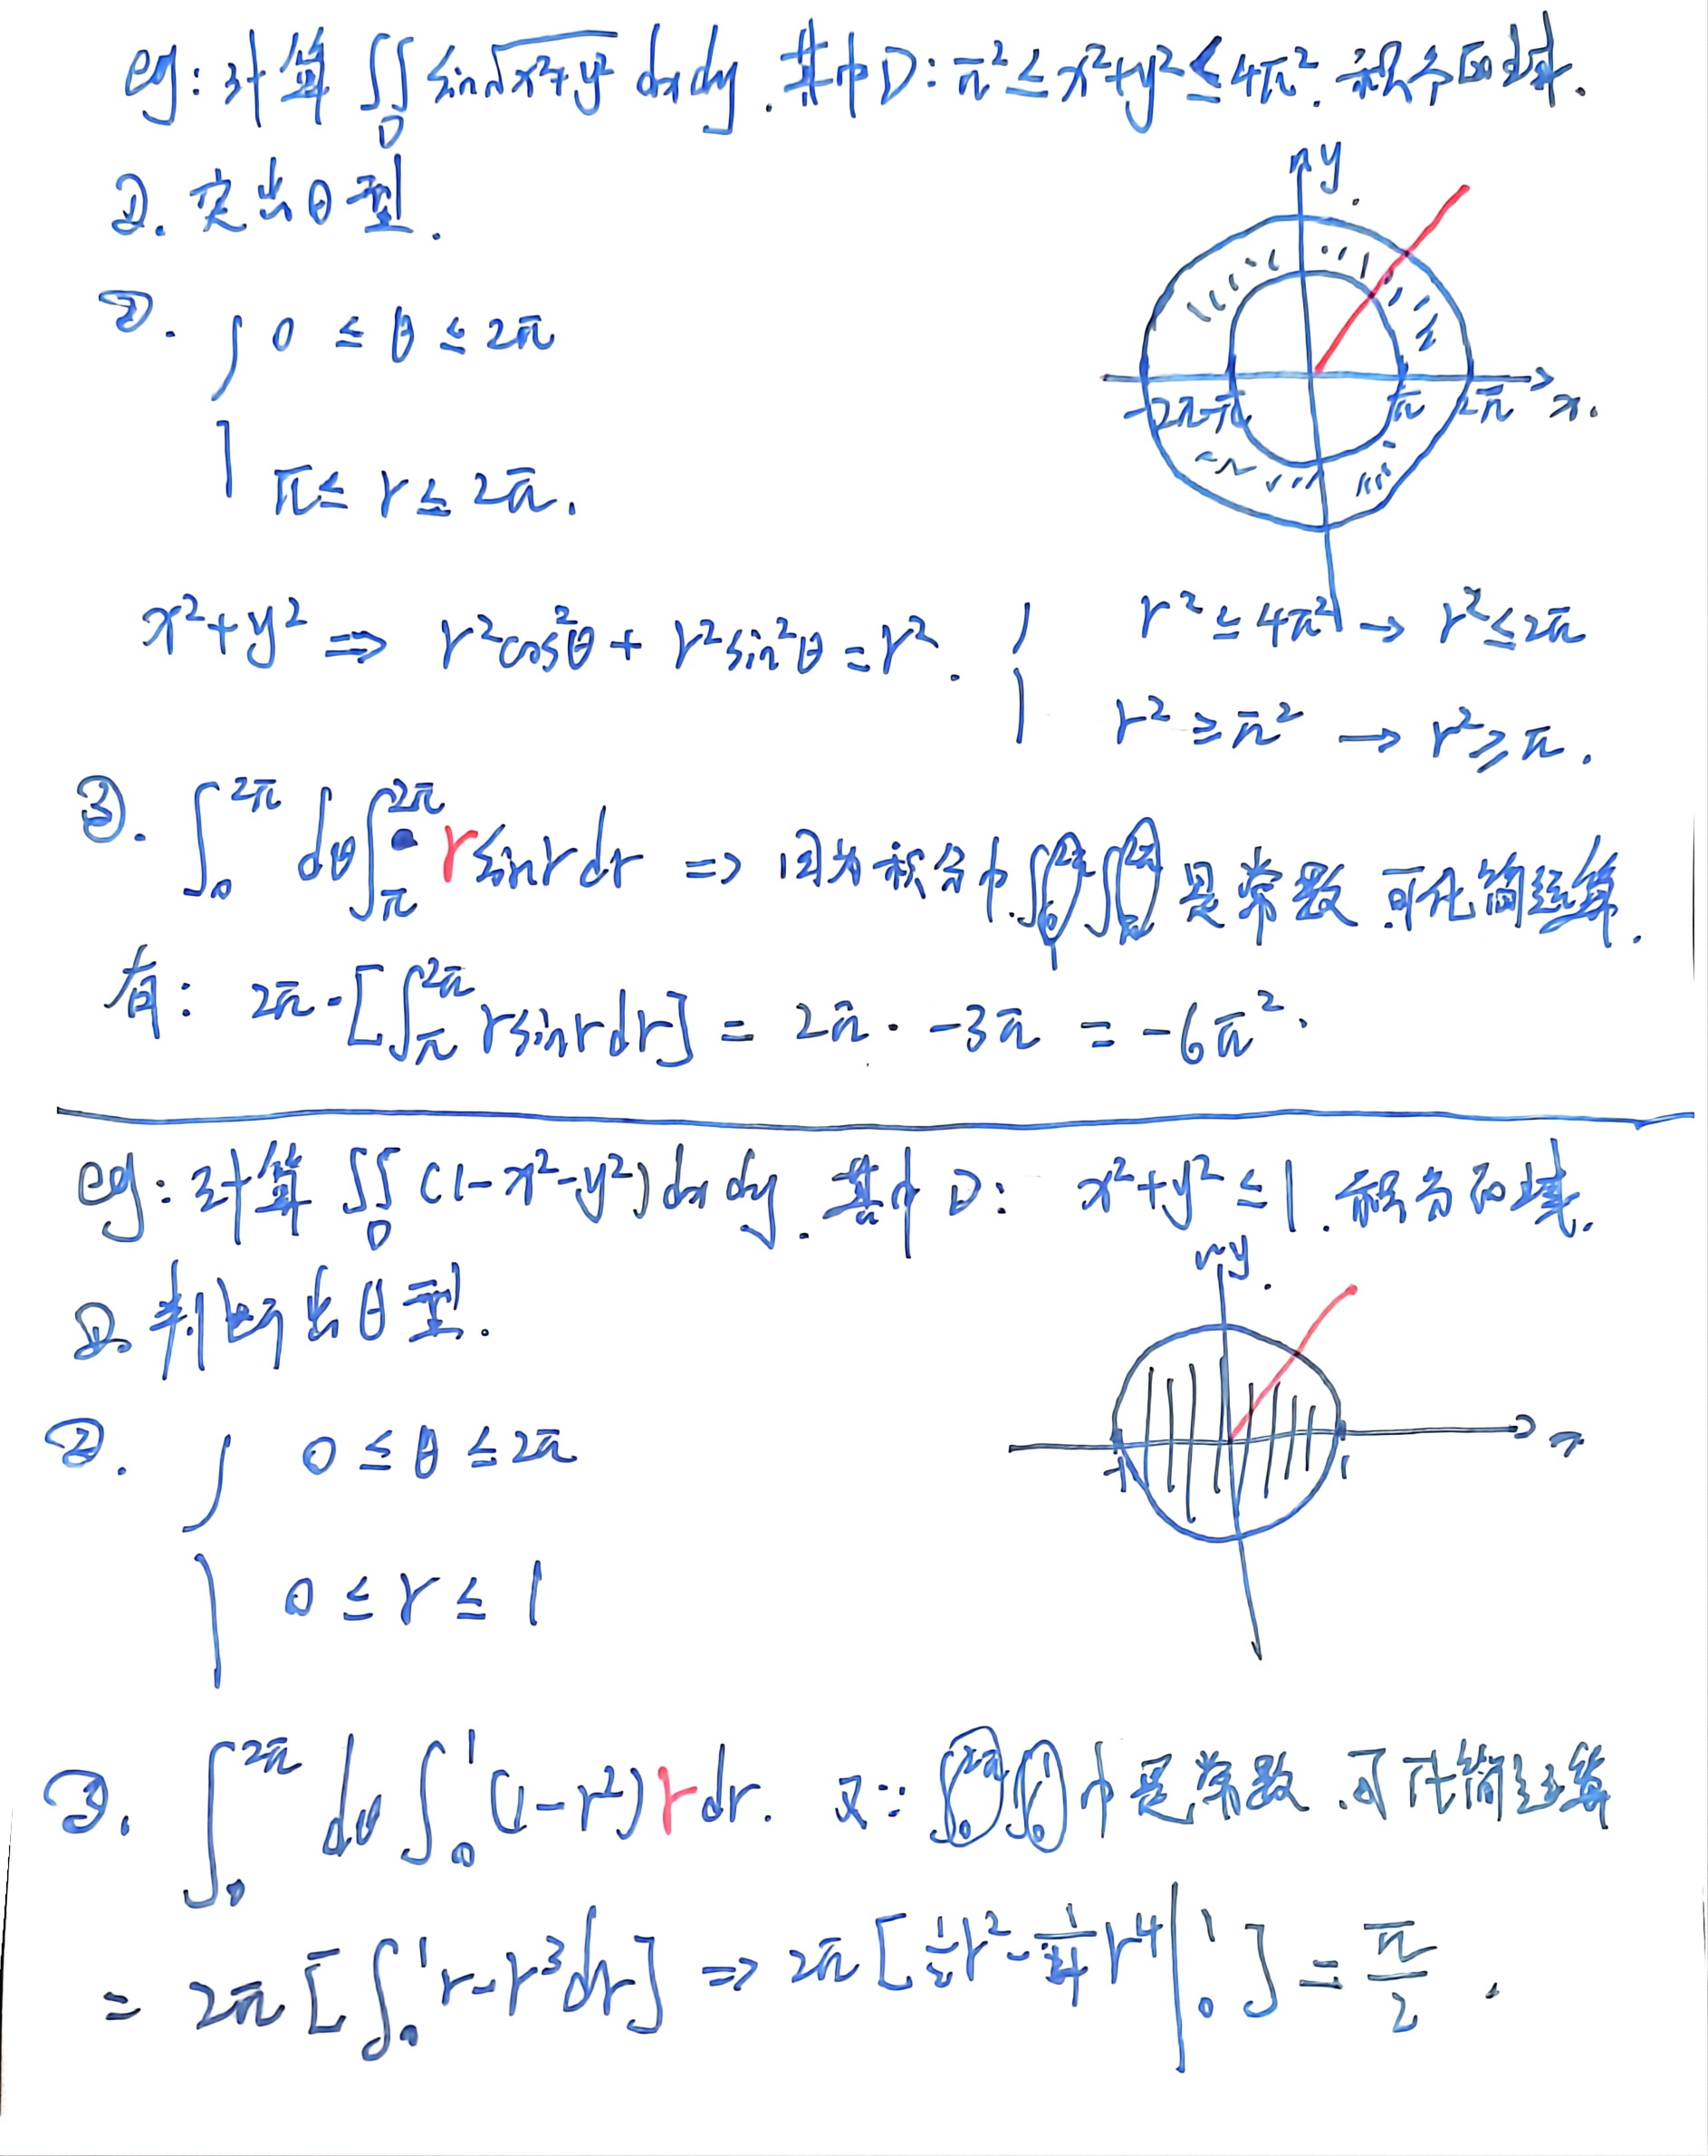 eg: 计算 ∬_D sin√(x²+y²) dxdy. 其中D: π² ≤ x²+y² ≤ 4π². 积分区域.
②. 突出θ型.
y.
②. { 0 ≤ θ ≤ 2π
-2π -π π 2π x.
π ≤ r ≤ 2π.
x²+y² ⇒ r²cos²θ + r²sin²θ = r². { r² ≤ 4π² → r² ≤ 2π
r² ≥ π² → r² ≥ π.
③. ∫₀^{2π} dθ ∫_π^{2π} r sinr dr ⇒ 因为积分中 ∫₀^{2π} ∫_π^{2π} 是常数 可化简运算.
有: 2π·[∫_π^{2π} r sinr dr] = 2π · -3π = -6π².
eg: 计算 ∬_D (1-x²-y²) dxdy. 其中 D: x²+y² ≤ 1. 积分区域.
y.
②. 判断出θ型.
②. { 0 ≤ θ ≤ 2π
-1 1 x
0 ≤ r ≤ 1
③. ∫₀^{2π} dθ ∫₀¹ (1-r²) r dr. 又∵ ∫₀^{2π} ∫₀¹ 中是常数. 可化简运算
= 2π [∫₀¹ r-r³ dr] ⇒ 2π [½r² - ¼r⁴ |₀¹ ] = π/2 .